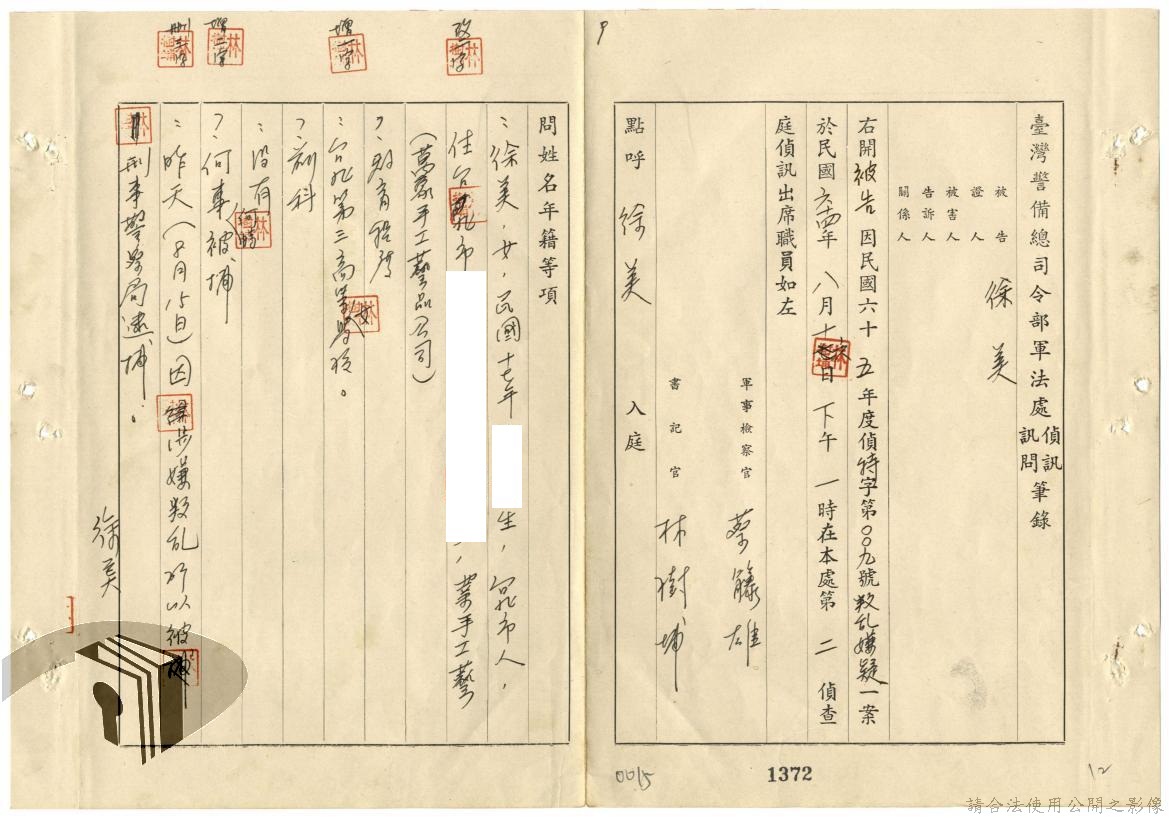 臺灣警備總司令部軍法處偵訊訊問筆錄
被告
證人
被害人
告訴人
關係人
徐美
右開被告因民國六十五年度偵特字第００九號叛乱嫌疑一案
於民國六十四年八月十 日下午一時在本處第二偵查
庭偵訊出席職員如左
軍事檢察官 蔡籐雄
書記官 林樹埔
點呼 徐美 入庭
問姓名年籍等項
：徐美，女，民國十七年 生，台北市人，
住台北市 ，業手工藝
（萬象手工藝品公司）
？：教育程度
：台北第三高等女學校。
？：前科
：沒有
？：何時何事被捕
：昨天（8月15日）因涉嫌叛乱所以被
刑事警察局逮捕。
徐美
改一字
增一字
增一字
刪三字
1372
0015
12
9
請合法使用公開之影像